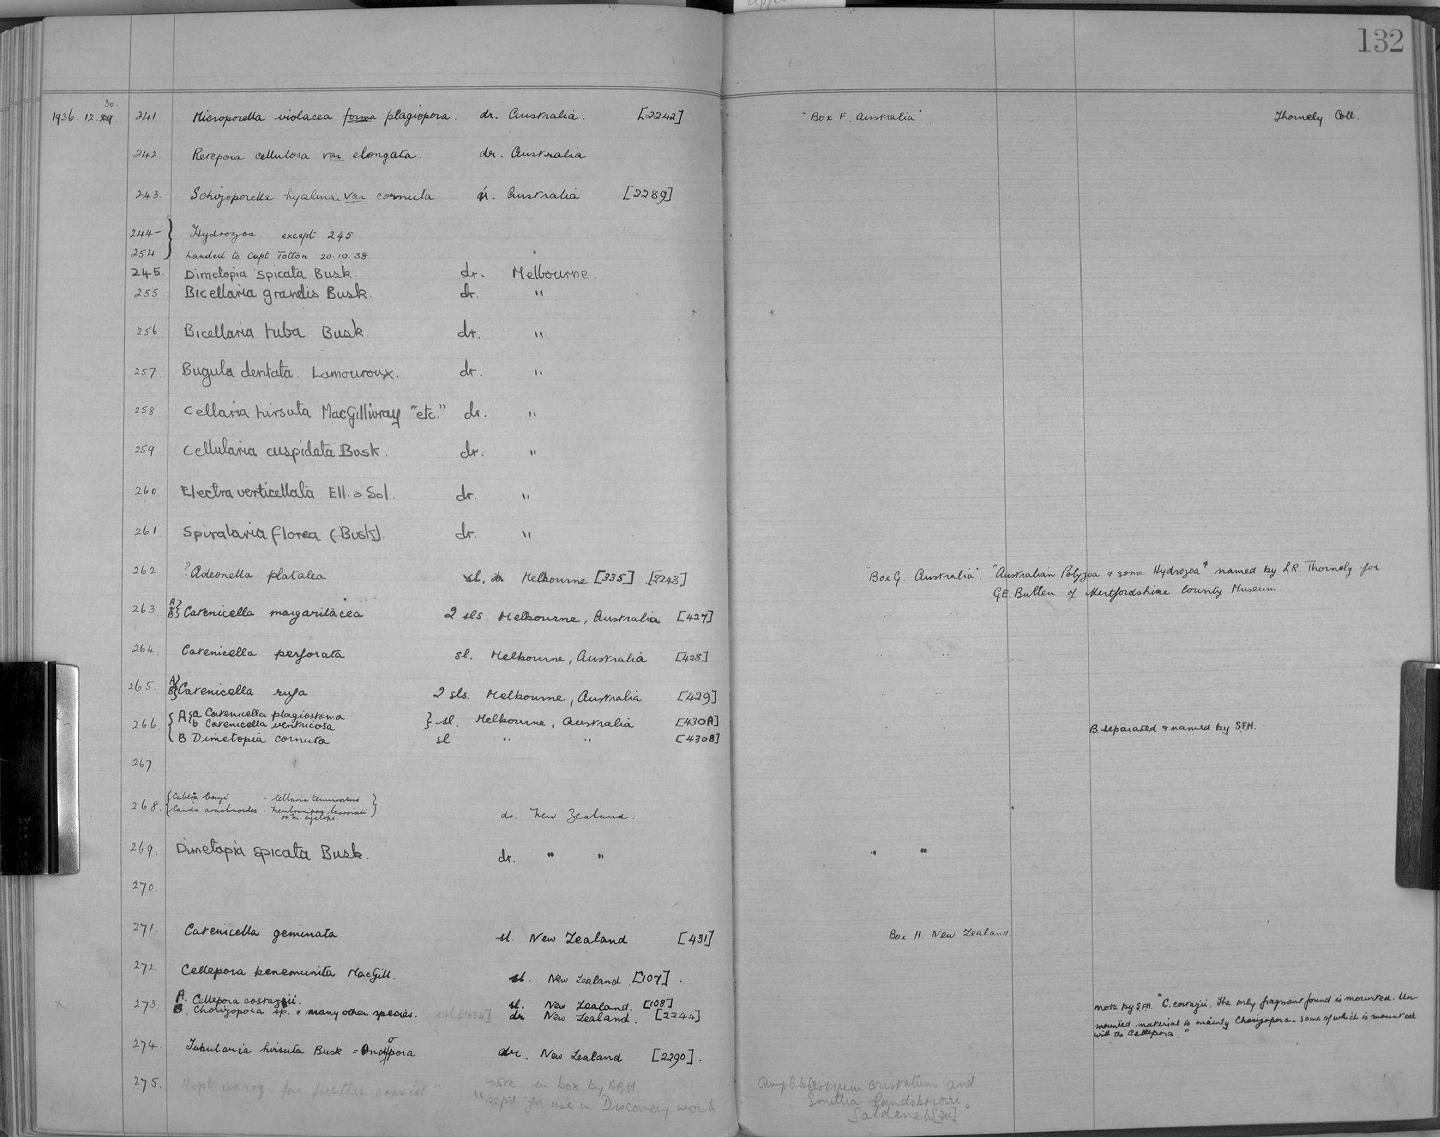 132
1936. 12. 30. 241 Microporella violacea forma plagiopora. dr. Australia. [2242] "Box F. Australia". Thornely Coll.
242. Retepora cellulosa var elongata. dr. Australia
243. Schizoporella hyalina var cornuta dr. Australia [2289]
244- Hydrozoa except 245
254 handed to Capt Totton 20.10.38.
245. Dimetopia spicata Busk. dr. Melbourne.
255 Bicellaria grandis Busk. dr. "
256 Bicellaria tuba Busk dr. "
257 Bugula dentata. Lamouroux. dr. "
258 Cellaria hirsuta MacGillivray "etc." dr. "
259 Cellularia cuspidata Busk. dr. "
260 Electra verticellata Ell. & Sol. dr. "
261 Spiralaria florea (Busk). dr. "
262 ?Adeonella platalea sl. Melbourne [335] [2243] "Box G. Australia". "Australian Polyzoa & some Hydrozoa" named by L.R. Thornely for
G.E. Bullen of Hertfordshire County Museum
263 A} B} Catenicella margaritacea 2 sls Melbourne, Australia [427]
264. Catenicella perforata sl. Melbourne, Australia [428]
265. A} B} Catenicella rufa 2 sls. Melbourne, Australia [429]
266 A a Catenicella plagiostoma
b Catenicella ventricosa } sl. Melbourne, Australia [430A] B separated & named by S.F.H.
B Dimetopia cornuta sl " " [430B]
267
268. Caberea
Canda arachnoides dr. New Zealand.
269. Dimetopia spicata Busk. dr. " " " "
270.
271. Catenicella geminata sl. New Zealand [431] Box H. New Zealand
272. Cellepora benemunita MacGill. sl. New Zealand [107].
273. A. Cellepora costazii. sl. New Zealand. [108] note by S.F.H. "C. costazii. The only fragment found is mounted. Un-
B. Chorizopora sp. & many other species. dr New Zealand. [2244] mounted material is mainly Chorizopora. some of which is mounted
with the Cellepora."
274. Tubularia hirsuta Busk = dr. New Zealand [2290].
275. Kept for further note in box by
for use in Discovery work
and
Smittia landsborovi,
Saldanah